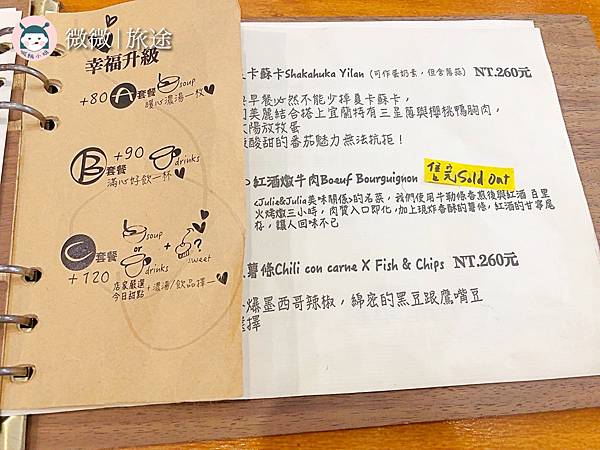 微微|旅途
幸福升級
+80 A套餐 soup
暖心濃湯一杯
B套餐 +90 drinks
滿心好飲一杯
C套餐 +120
soup
or
drinks
+ ?
sweet
店家嚴選
今日甜點
+濃湯/飲品擇一
卡蘇卡Shakahuka Yilan (可作蛋奶素,但含蔥蒜) NT.260元
早餐必然不能少掉夏卡蘇卡,
美麗結合搭上宜蘭特有三星蔥與櫻桃鴨胸肉,
太陽放牧蛋
酸甜的番茄魅力無法抗拒!
紅酒燉牛肉Bœuf Bourguignon 售完Sold Out
<Julie&Julia美味關係>的名菜,我們使用牛肋條香煎後與紅酒 百里
火烤燉三小時,肉質入口即化,加上現炸香酥的薯條,紅酒的甘寧尾
存,讓人回味不已
薯條Chili con carne X Fish & Chips NT.260元
爆墨西哥辣椒,綿密的黑豆跟鷹嘴豆
擇